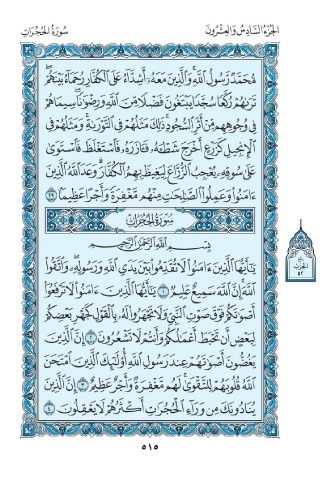 الجزء السادس والعشرون
سورة الحجرات
مُّحَمَّدٌ رَّسُولُ اللَّهِ وَالَّذِينَ مَعَهُ أَشِدَّاءُ عَلَى الْكُفَّارِ رُحَمَاءُ بَيْنَهُمْ
تَرَاهُمْ رُكَّعًا سُجَّدًا يَبْتَغُونَ فَضْلًا مِّنَ اللَّهِ وَرِضْوَانًا سِيمَاهُمْ
فِي وُجُوهِهِم مِّنْ أَثَرِ السُّجُودِ ذَٰلِكَ مَثَلُهُمْ فِي التَّوْرَاةِ وَمَثَلُهُمْ فِي
الْإِنجِيلِ كَزَرْعٍ أَخْرَجَ شَطْأَهُ فَآزَرَهُ فَاسْتَغْلَظَ فَاسْتَوَىٰ
عَلَىٰ سُوقِهِ يُعْجِبُ الزُّرَّاعَ لِيَغِيظَ بِهِمُ الْكُفَّارَ وَعَدَ اللَّهُ الَّذِينَ
ءَامَنُوا وَعَمِلُوا الصَّالِحَاتِ مِنْهُم مَّغْفِرَةً وَأَجْرًا عَظِيمًا ٢٩
سورة الحجرات
بِسْمِ اللَّهِ الرَّحْمَٰنِ الرَّحِيمِ
يَا أَيُّهَا الَّذِينَ ءَامَنُوا لَا تُقَدِّمُوا بَيْنَ يَدَيِ اللَّهِ وَرَسُولِهِ وَاتَّقُوا
اللَّهَ إِنَّ اللَّهَ سَمِيعٌ عَلِيمٌ ١ يَا أَيُّهَا الَّذِينَ ءَامَنُوا لَا تَرْفَعُوا
أَصْوَاتَكُمْ فَوْقَ صَوْتِ النَّبِيِّ وَلَا تَجْهَرُوا لَهُ بِالْقَوْلِ كَجَهْرِ بَعْضِكُمْ
لِبَعْضٍ أَن تَحْبَطَ أَعْمَالُكُمْ وَأَنتُمْ لَا تَشْعُرُونَ ٢ إِنَّ الَّذِينَ
يَغُضُّونَ أَصْوَاتَهُمْ عِندَ رَسُولِ اللَّهِ أُولَٰئِكَ الَّذِينَ امْتَحَنَ
اللَّهُ قُلُوبَهُمْ لِلتَّقْوَىٰ لَهُم مَّغْفِرَةٌ وَأَجْرٌ عَظِيمٌ ٣ إِنَّ الَّذِينَ
يُنَادُونَكَ مِن وَرَاءِ الْحُجُرَاتِ أَكْثَرُهُمْ لَا يَعْقِلُونَ ٤
الحزب
٥٢
٥١٥